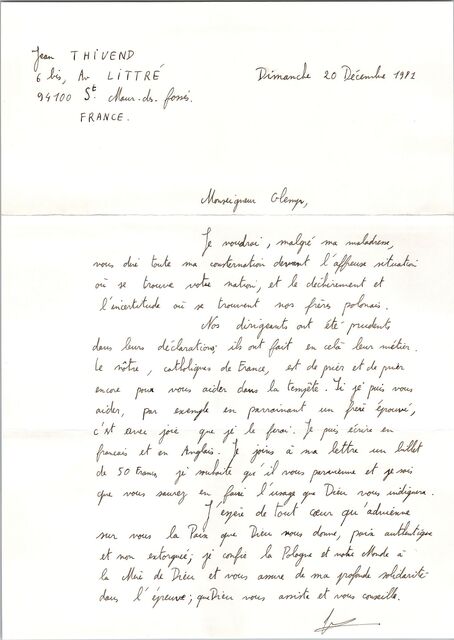 Jean THIVEND
6 bis, Av LITTRÉ
94100 St Maur-des-fossés.
FRANCE.
Dimanche 20 Décembre 1981
Monseigneur Glemp,
Je voudrai, malgré ma maladresse,
vous dire toute ma consternation devant l'affreuse situation
où se trouve votre nation, et le déchirement et
l'incertitude où se trouvent nos frères polonais.
Nos dirigeants ont été prudents
dans leurs déclarations; ils ont fait en celà leur métier.
Le nôtre, catholiques de France, est de prier et de prier
encore pour vous aider dans la tempête. Si je puis vous
aider, par exemple en parrainant un frère éprouvé,
c'est avec joie que je le ferai. Je puis écrire en
français et en Anglais. Je joins à ma lettre un billet
de 50 Francs je souhaite qu'il vous parvienne et je sais
que vous saurez en faire l'usage que Dieu vous indiquera.
J'espère de tout cœur qu'advienne
sur vous la Paix que Dieu nous donne, paix authentique
et non extorquée; je confie la Pologne et notre Monde à
la Mère de Dieu et vous assure de ma profonde solidarité
dans l'épreuve; que Dieu vous assiste et vous conseille.